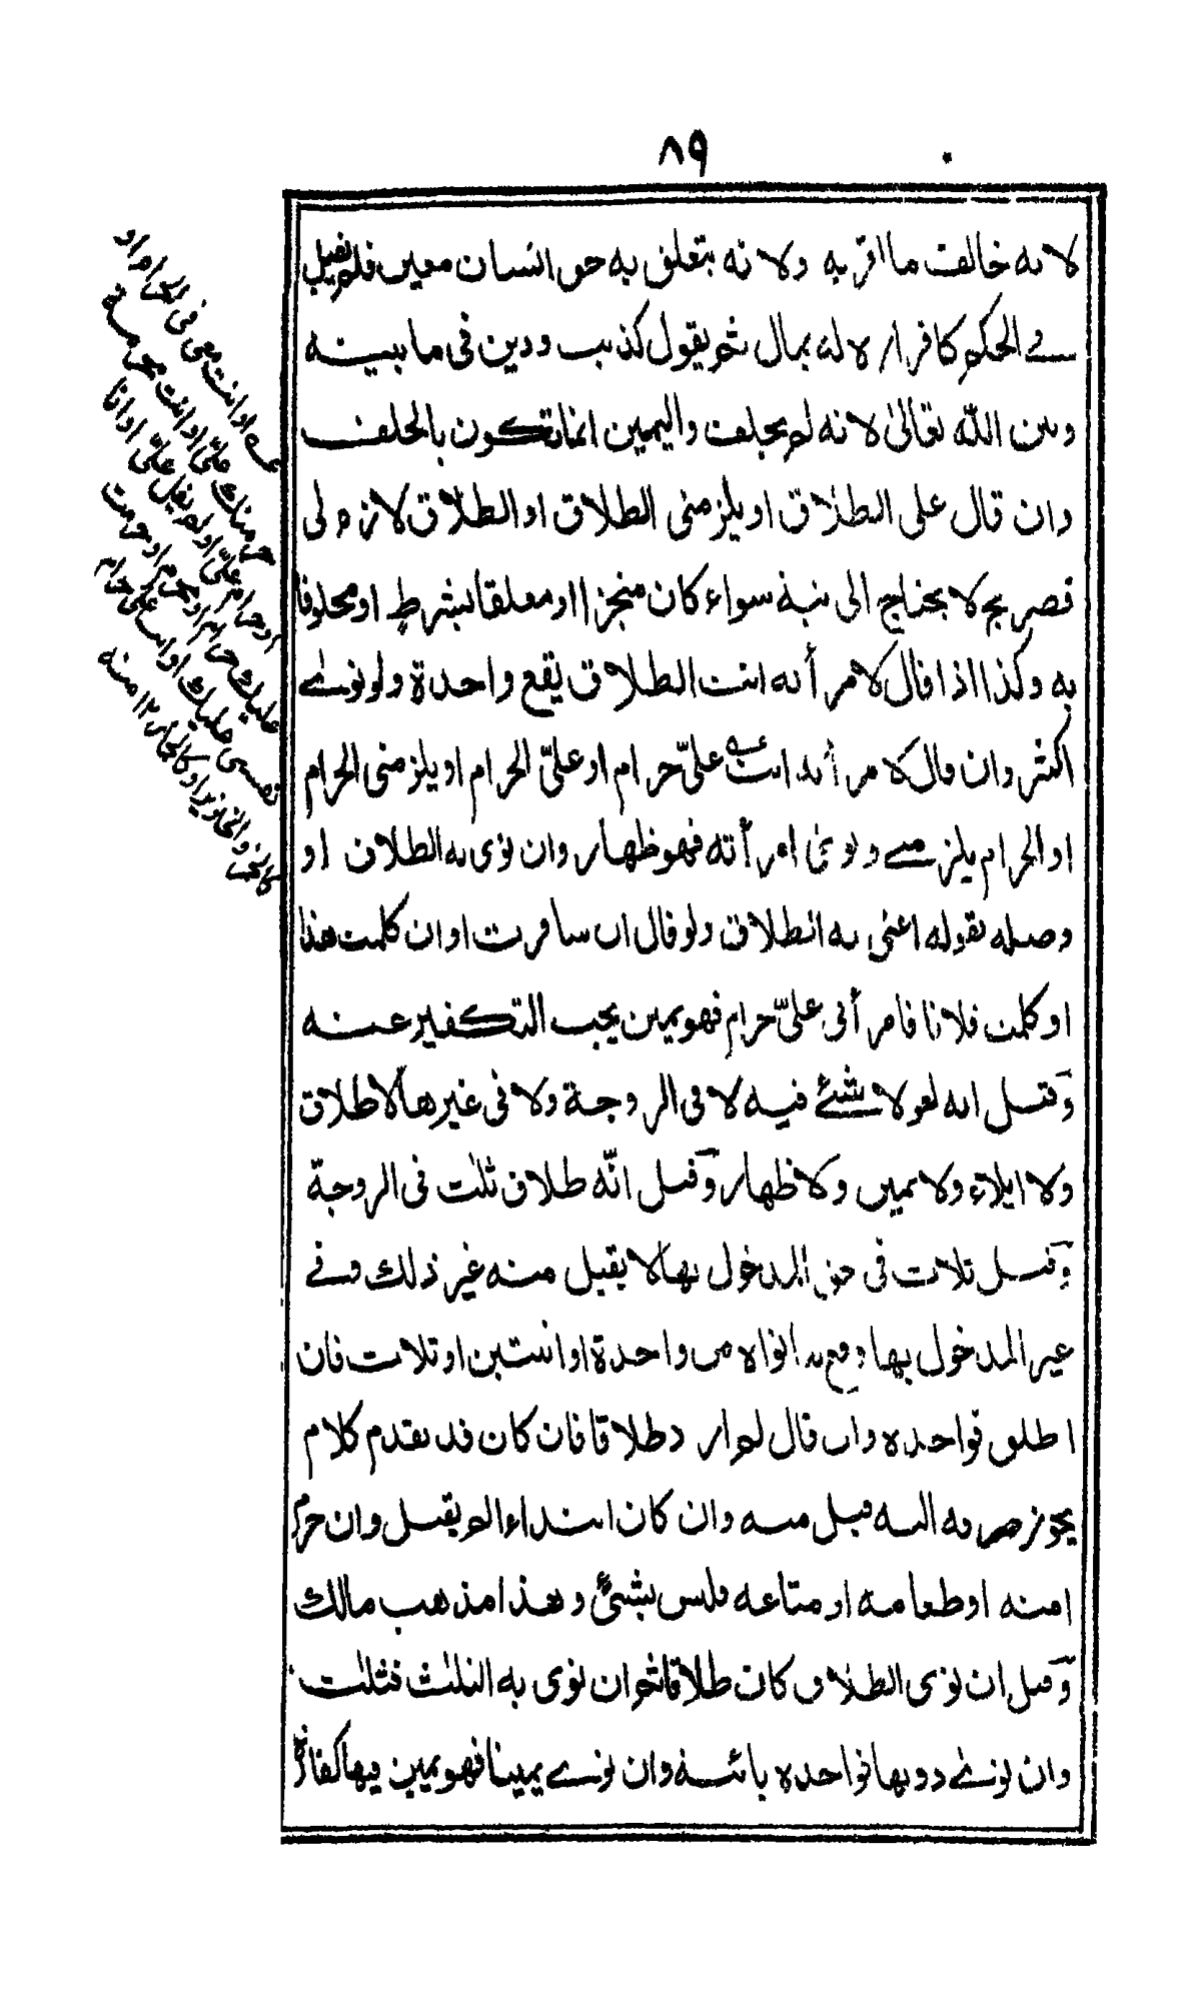 ٨٩
لانه خالف ما اقر به ولانه يتعلق به حق انسان معين فلم يقبل
في الحكم كاقراره له بمال ثم يقول كذبت ودين في ما بينه
وبين الله تعالى لانه لم يحلف واليمين انما تكون بالحلف
وان قال على الطلاق او يلزمني الطلاق او الطلاق لازم لي
فصريح لا يحتاج الى نية سواء كان منجزا او معلقا بشرط او محلوفا
به وكذا اذا قال لامرأته انت الطلاق يقع واحدة ولو نوى
اكثر وان قال لامرأته انت عليّ حرام او عليّ الحرام او يلزمني الحرام
او الحرام يلزمني ولو نوى امرأته فهو ظهار وان نوى به الطلاق او
وصله بقوله اعنى به الطلاق ولو قال ان سافرت او ان كلمت هذا
او كلمت فلانا فامرأتي عليّ حرام فهو يمين يجب التكفير عنه
وقيل انه لغو لا شئ فيه لا في الزوجة ولا في غيرها لا طلاق
ولا ايلاء ولا يمين ولا ظهار وقيل انّه طلاق ثلث في الزوجة
وقيل ثلاث في حق المدخول بها لا يقبل منه غير ذلك وفي
غير المدخول بها وقع به انواه من واحدة او اثنتين او ثلاث فان
اطلق فواحده وان قال لم ارد طلاقا فان كان قد تقدم كلام
يجوز صرفه اليه قبل منه وان كان ابتداء لم يقبل وان حرم
امته او طعامه او متاعه فليس بشئ وهذا مذهب مالك
وقيل ان نوى الطلاق كان طلاقا ثم ان نوى به الثلث فثلث
وان نوى دونها فواحده بائنة وان نوى يمينا فهو يمين فيها كفارة
عه او انت معى في الحرام او
منك عليّ او انت محرمة
او حرام عليّ او لم يقل عليّ او انا
عليك حرام او محرم او حرمت
نفسى عليك او انت على حرام
كالخمر والخنزير او كالحمار ١٢ منه